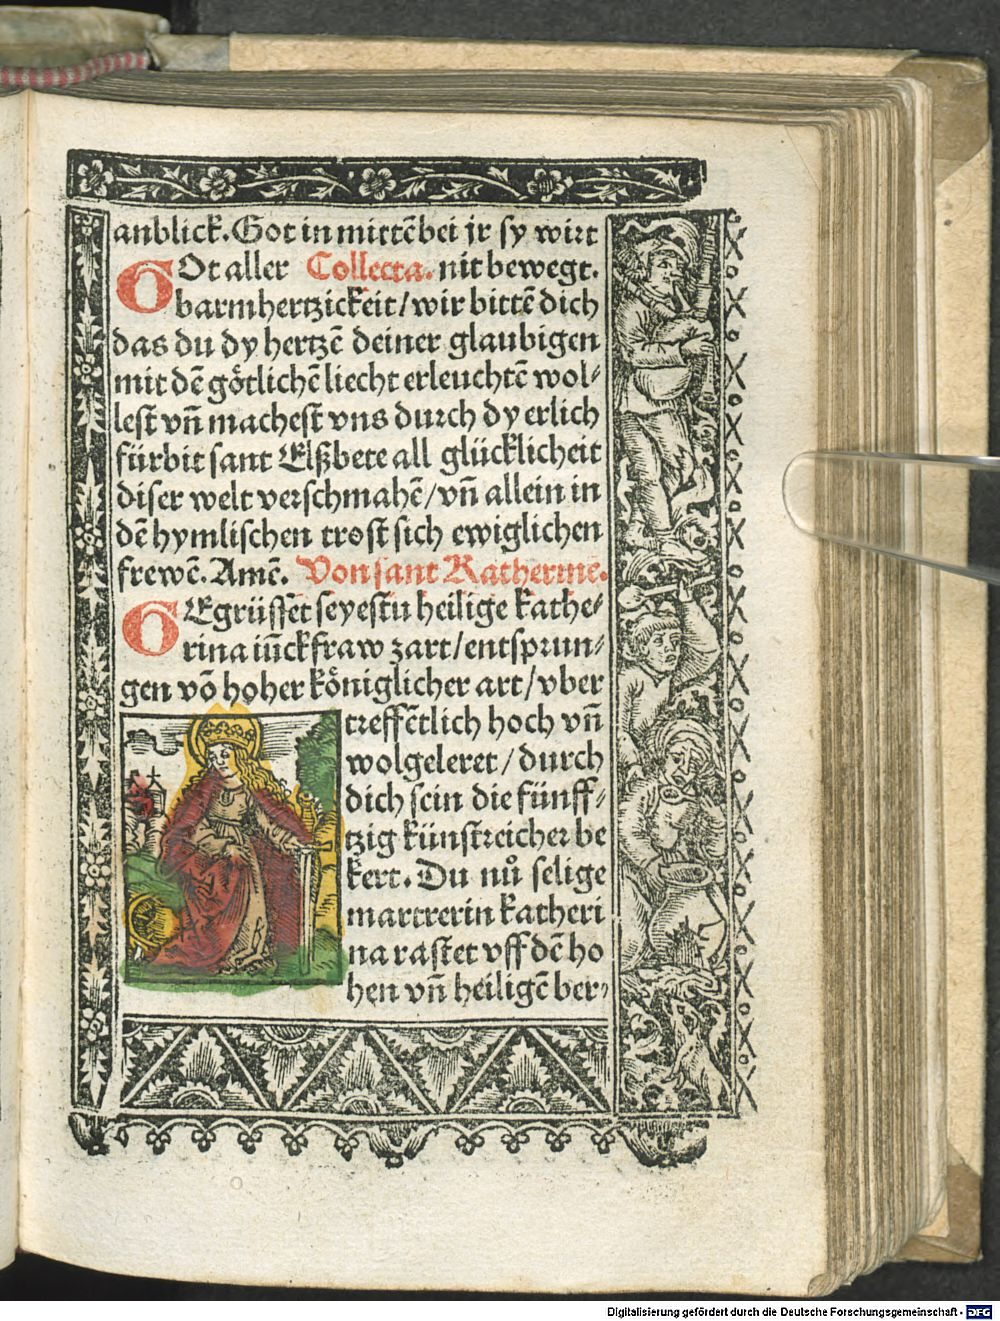 anblick. Got in mittē bei jr sy wirt
GOt aller Collecta. nit bewegt.
barmhertzickeit/wir bittē dich
das du dy hertzē deiner glaubigen
mit dē götlichē liecht erleuchtē wol⸗
lest vn̄ machest vns durch dy erlich
fürbit sant Elßbete all glücklicheit
diser welt verschmahē/vn̄ allein in
dē hymlischen trost sich ewiglichen
frewē. Amē. Von sant Katherine.
GEgrüsset seyestu heilige kathe⸗
rina iūckfraw zart/entsprun⸗
gen vō hoher königlicher art/vber
treffētlich hoch vn̄
wolgeleret/durch
dich sein die fünff⸗
tzig künstreicher be
kert. Du nů selige
martrerin katheri
na rastet vff dē ho
hen vn̄ heiligē ber⸗
Digitalisierung gefördert durch die Deutsche Forschungsgemeinschaft - DFG